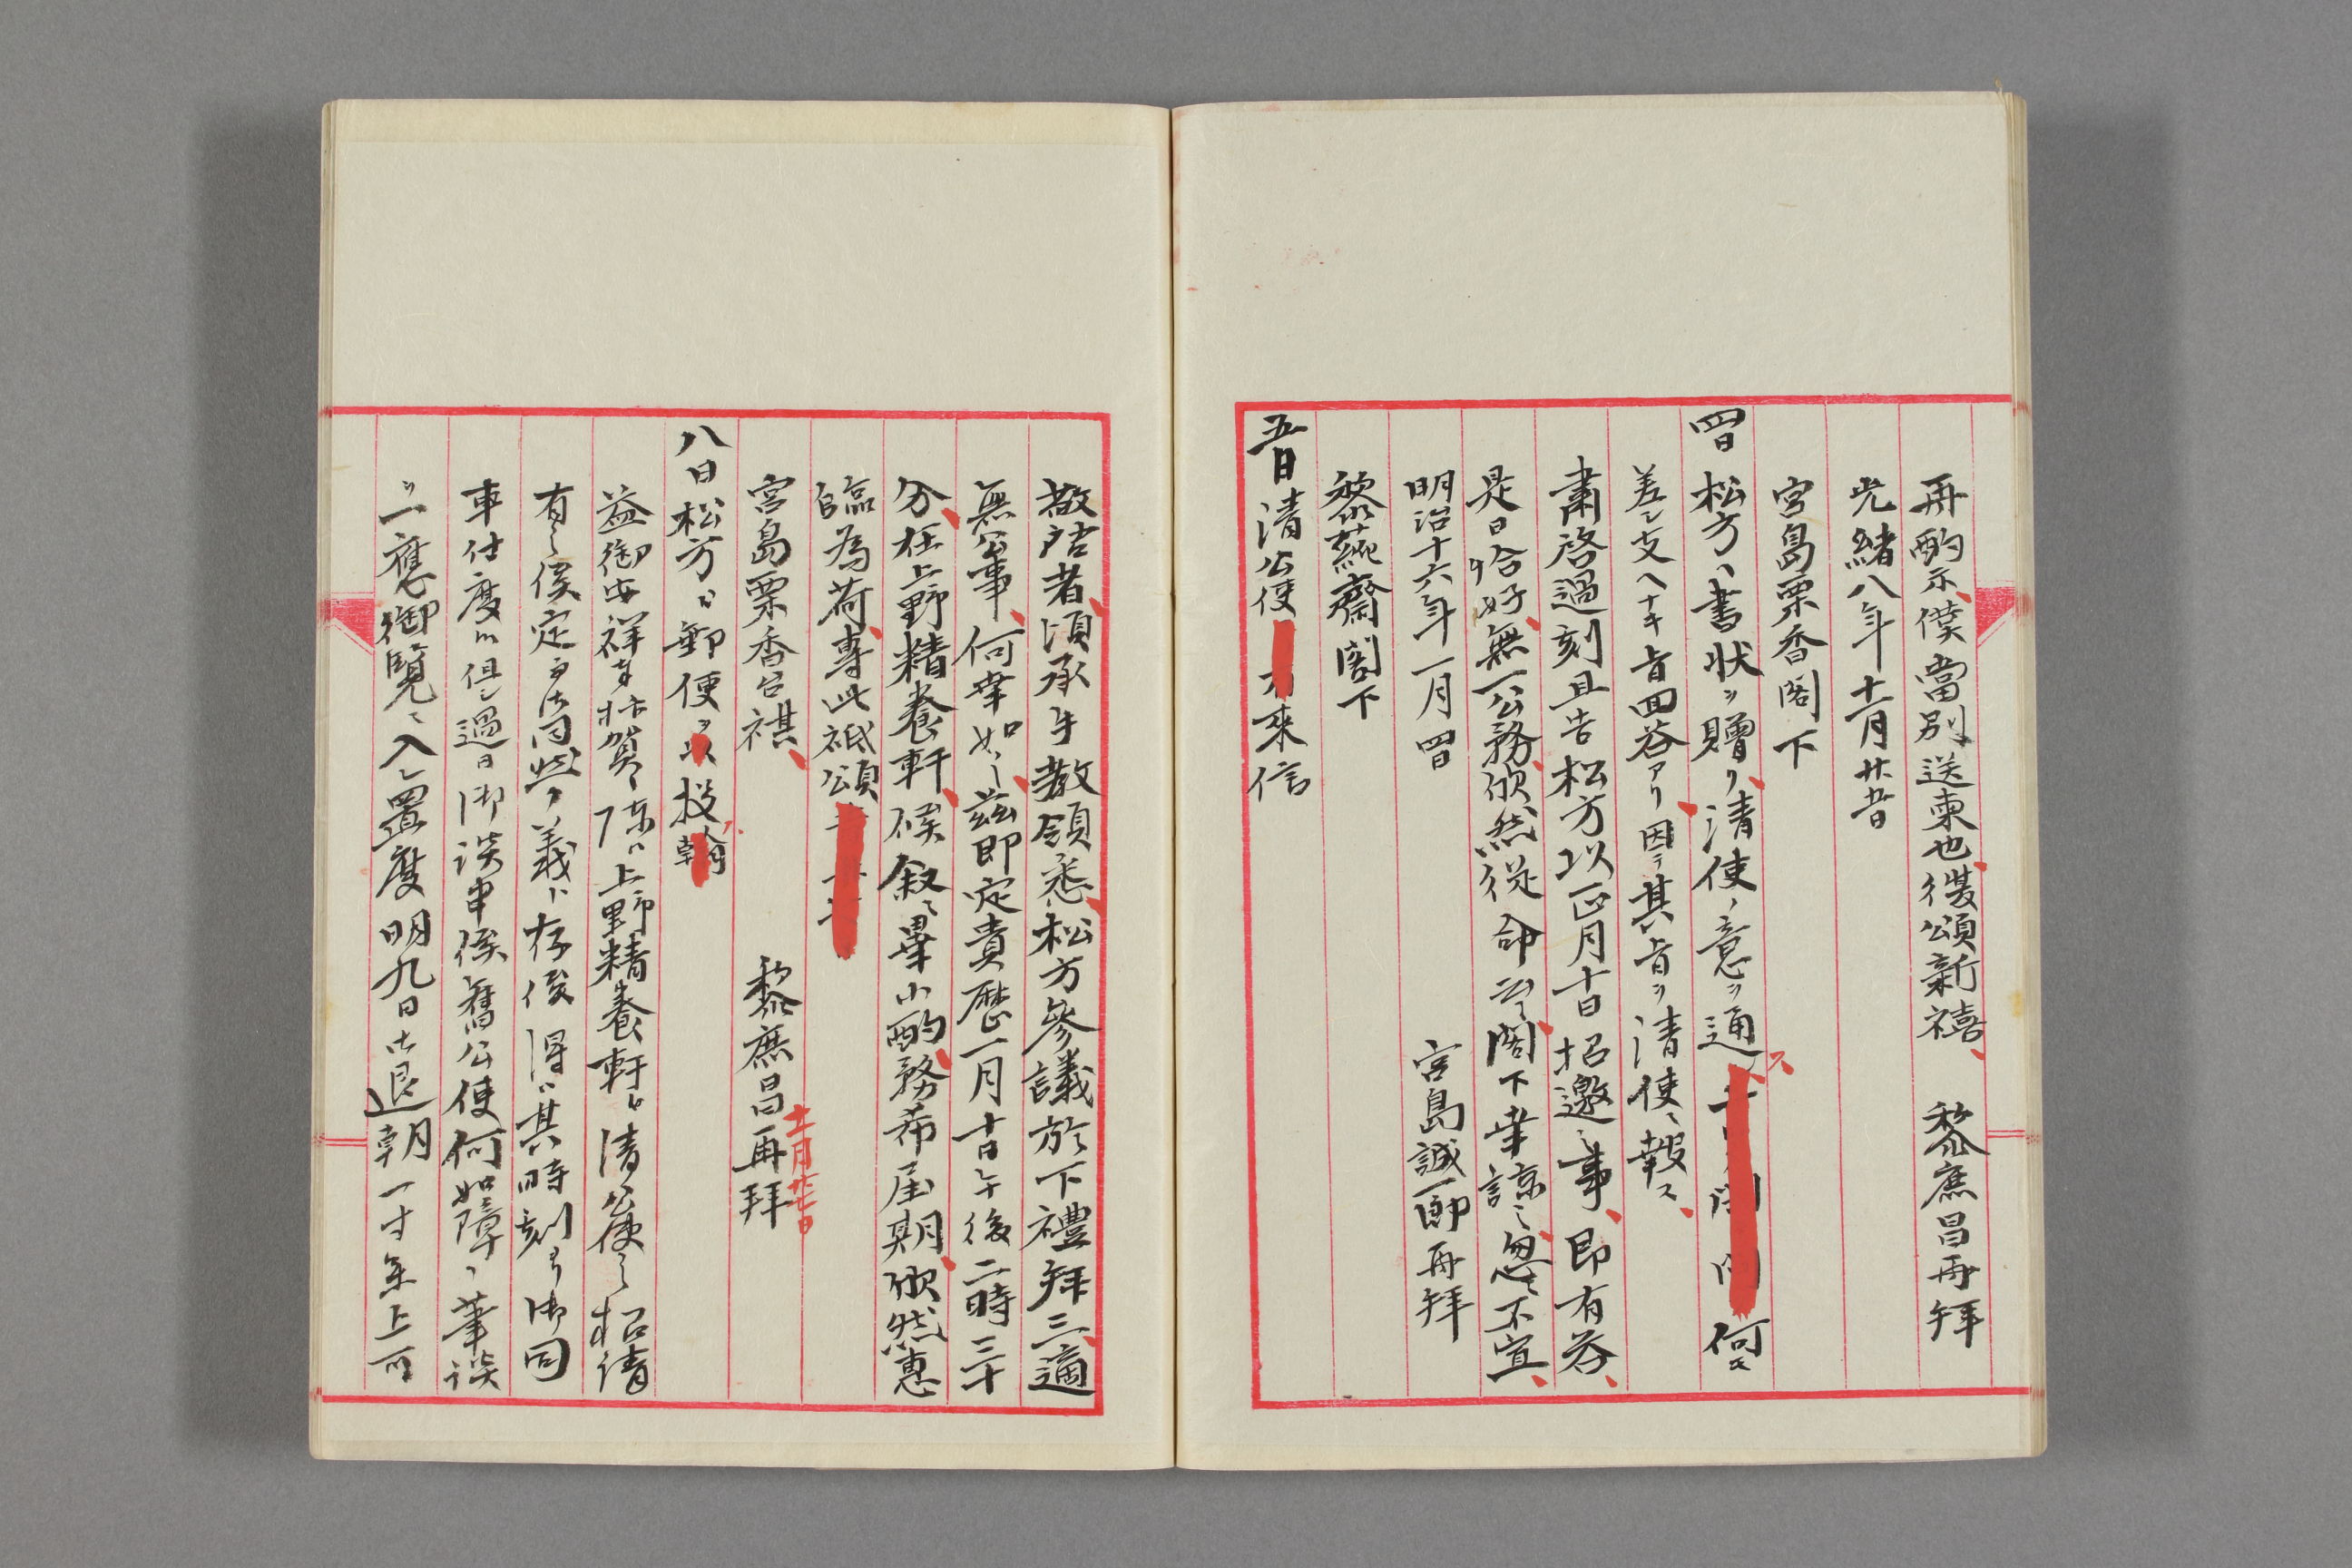 再酌示僕當別送柬也復頌新禧　黎庶昌再拜
光緒八年十一月廿五日
宮島栗香閣下
四日松方ヘ書状ヲ贈リ清使ノ意ヲ通ス何モ
差シ支ヘナキ旨回答アリ因テ其旨ヲ清使ニ報ス
肅啓過刻且告松方以正月十日招邀之事即有答
是日恰好無一公務欣然従命云々閣下幸諒之怱々不宣
明治十六年一月四日　宮島誠一郎再拜
黎蒓齋閣下
五日清公使来信
敬啓者頃承手教領悉松方參議於下禮拜三適
無公事何幸如之茲即定貴歴一月十日午後二時三十
分在上野精養軒候叙畢小酌務希届期欣然惠
臨為荷專此祗頌
宮島栗香台祺　黎庶昌再拜十一月廿七日
八日松方ヨリ郵便ヲ以投
益御安祥奉抃賀候陳ハ上野精養軒ヨリ清公使之招請
有之候定而御同些ノ義ト存候得ハ其時刻ヨリ御同
車仕度候但シ過日御談申候舊公使何如璋ノ筆談
ヲ一應御覧ニ入レ置度明九日御退朝一寸参上可